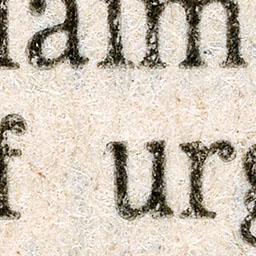 laim
f urg